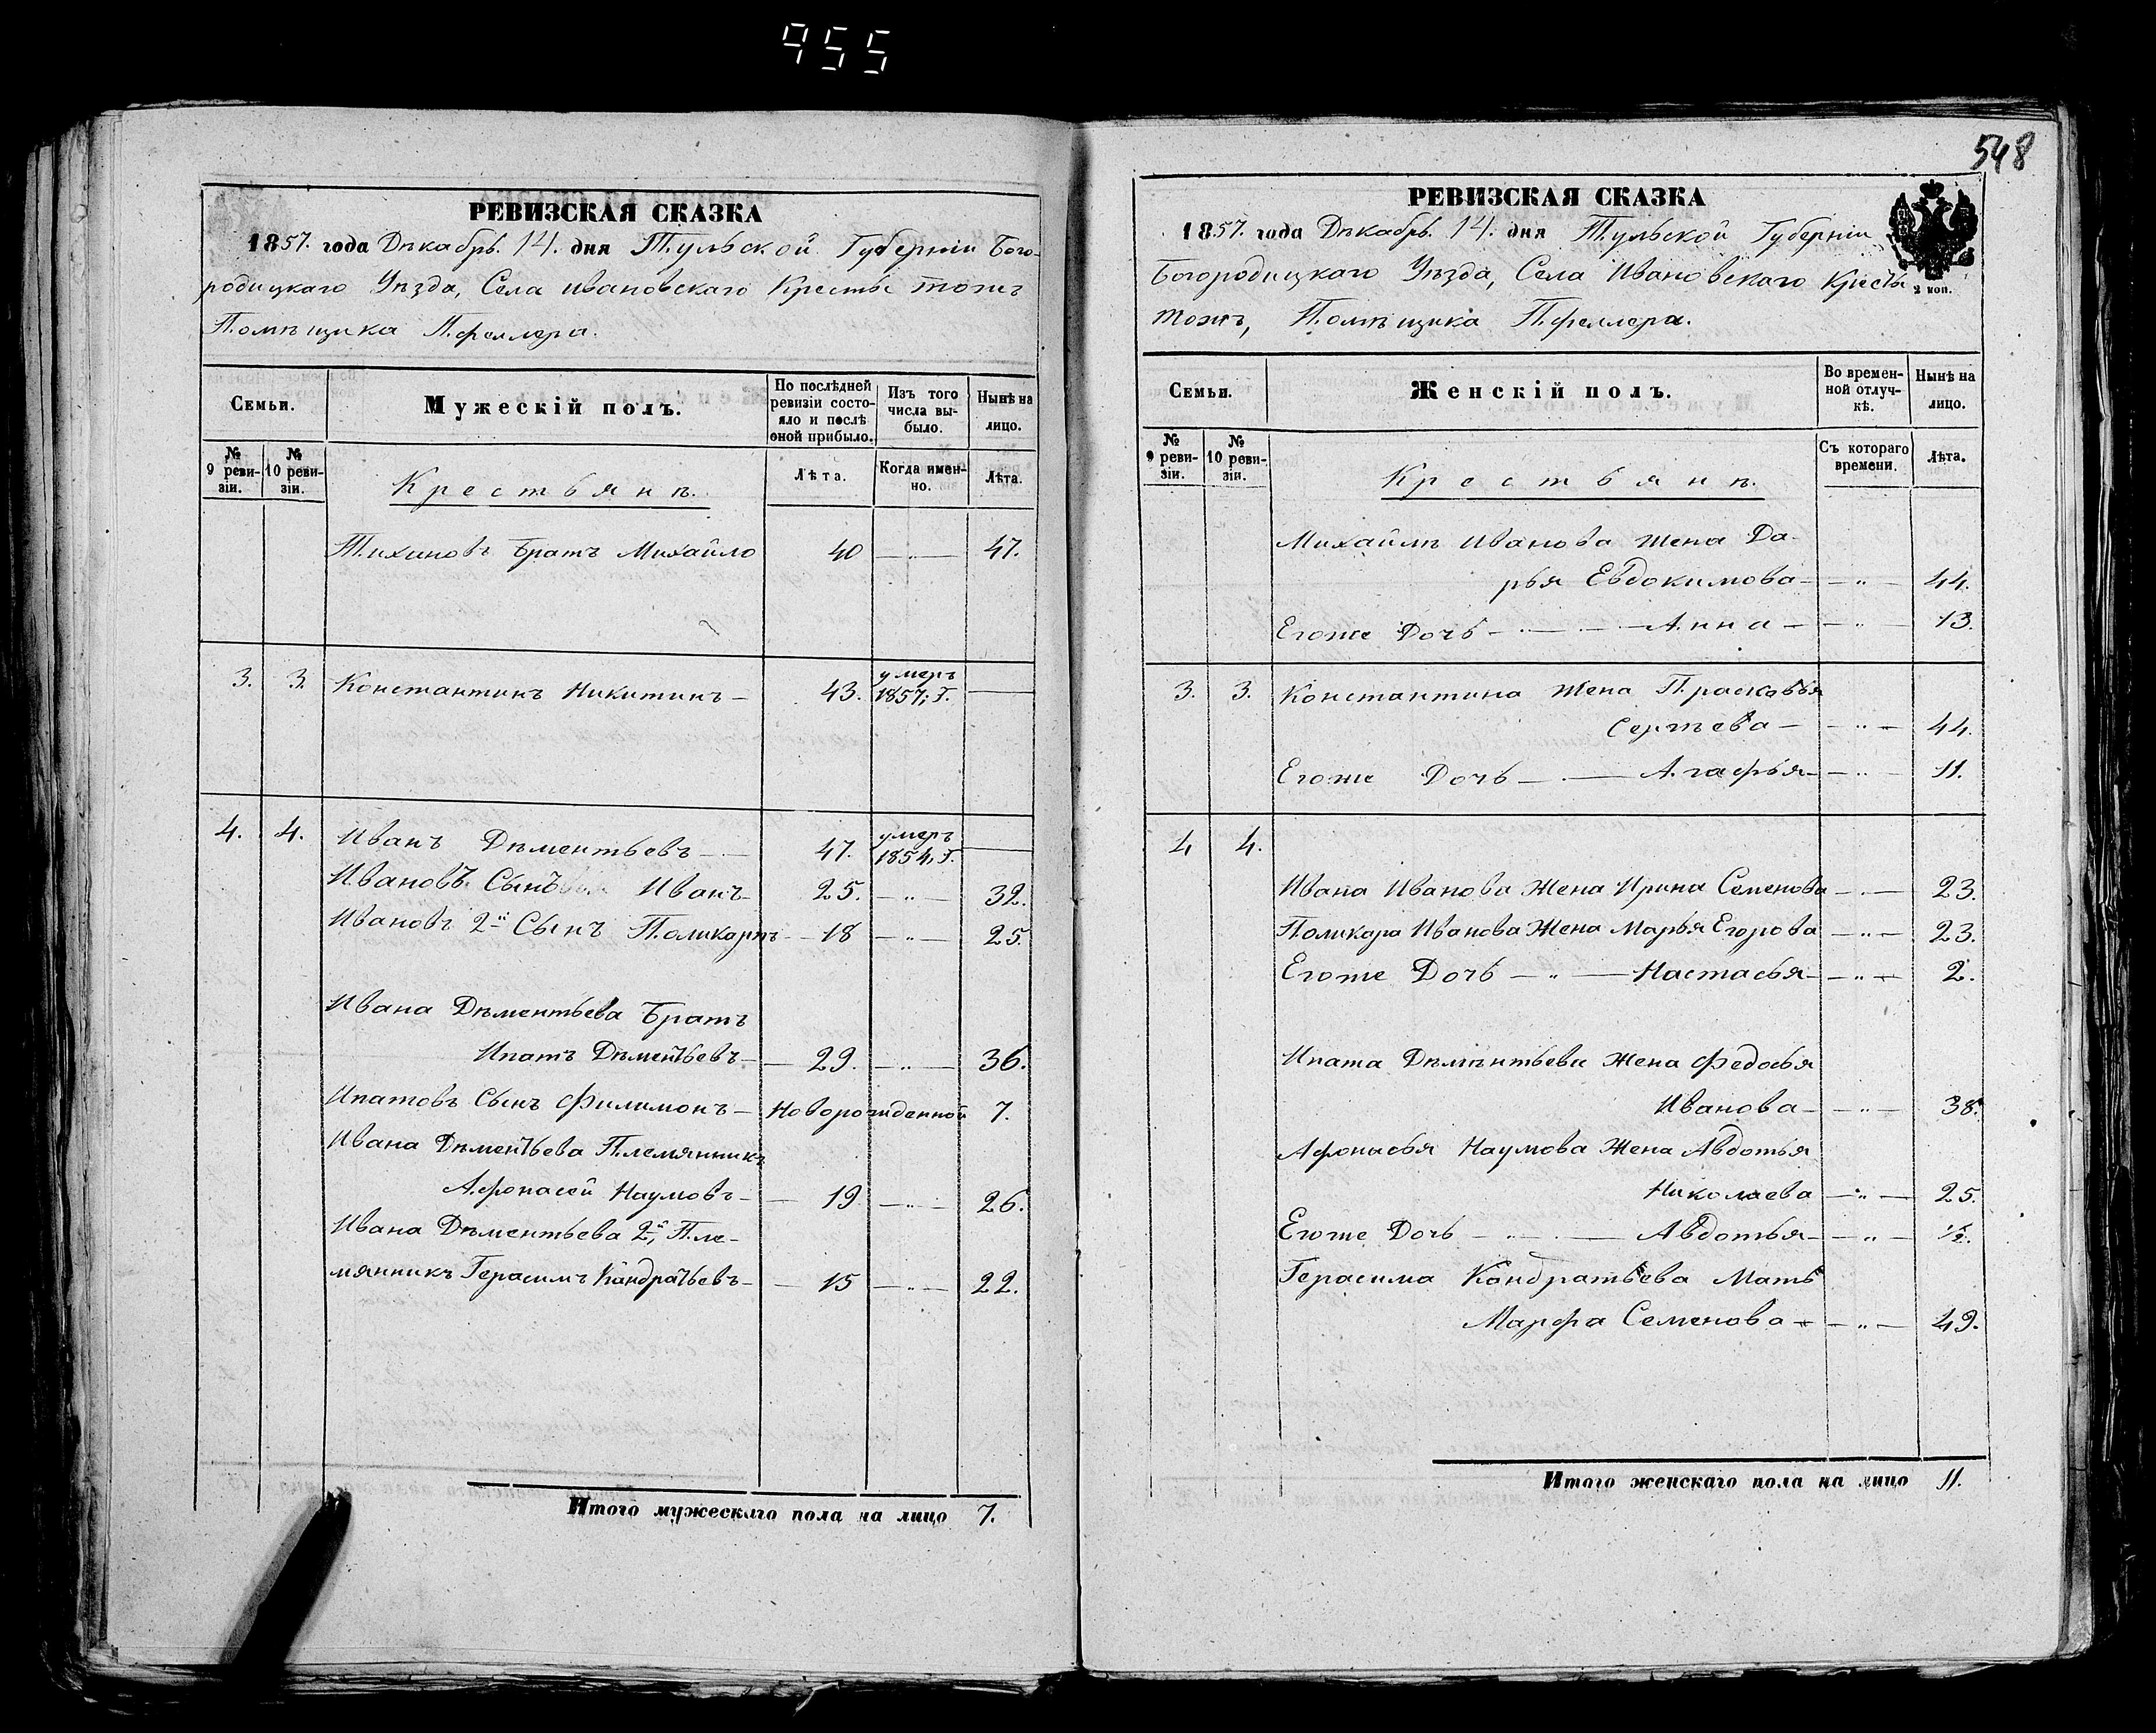 955
РЕВИЗСКАЯ СКАЗКА
1857. года Дѣкабрѣ. 14. дня Тульской Губерніи Бого-
родицкаго Уѣзда, Села Ивановскаго Кресты тожъ
Помѣщика Пфеллера.
Семьи.
Мужескій полъ.
По послѣдней ревизіи состо-
яло и послѣ оной прибыло.
Изъ того числа вы-
было.
Нынѣ на лицо.
№ 9 реви-
зіи.
№ 10 реви-
зіи.
Крестьянѣ.
Лѣта.
Когда имен-
но.
Лѣта.
Тихиновъ Братъ Михайло 40 —„— 47.
3. 3. Константинъ Никитинъ — 43. умеръ 1857, г. —
4. 4. Иванъ Дѣментьевъ — 47. умеръ 1854, г. —
Ивановъ Сынъ Иванъ — 25. —„— 32.
Ивановъ 2й Сынъ Поликарпъ — 18 —„— 25.
Ивана Дѣментьева Братъ
Ипатъ Дѣментьевъ — 29. —„— 36.
Ипатовъ Сынъ Филимонъ — Новорожденной 7.
Ивана Дѣментьева Племянникъ
Афонасей Наумовъ — 19 —„— 26.
Ивана Дѣментьева 2й, Пле-
мянникъ Герасимъ Кандратьевъ — 15 —„— 22.
Итого мужескаго пола на лицо 7.
548
РЕВИЗСКАЯ СКАЗКА
1857. года Дѣкабрѣ. 14. дня Тульской Губерніи
Богородицкаго Уѣзда, Села Ивановскаго Кресты
2 коп.
тожъ, Помѣщика Пфеллера.
Семьи.
Женскій полъ.
Во времен-
ной отлуч-
кѣ.
Нынѣ на лицо.
№ 9 реви-
зіи.
№ 10 реви-
зіи.
Крестьянѣ.
Съ котораго времени.
Лѣта.
Михайлѣ Иванова Жена Да-
рья Евдокимова — —„— 44.
Егоже Дочь —„— Анна — —„— 13.
3. 3. Константина Жена Прасковья
Сергѣева — —„— 44.
Егоже Дочь —„— Агафья — —„— 11.
4 4.
Ивана Иванова Жена Ирина Семенова —„— 23.
Поликара Иванова Жена Марья Егорова —„— 23.
Егоже Дочь —„— Настасья — —„— 2.
Ипата Дѣмѣнтьева Жена Федосья
Иванова — —„— 38.
Афонасья Наумова Жена Авдотья
Николаева —„— 25.
Егоже Дочь —„— Авдотья — —„— 1/2.
Герасима Кондратьева Мать
Марфа Семенова — —„— 49.
Итого женскаго пола на лицо 11.